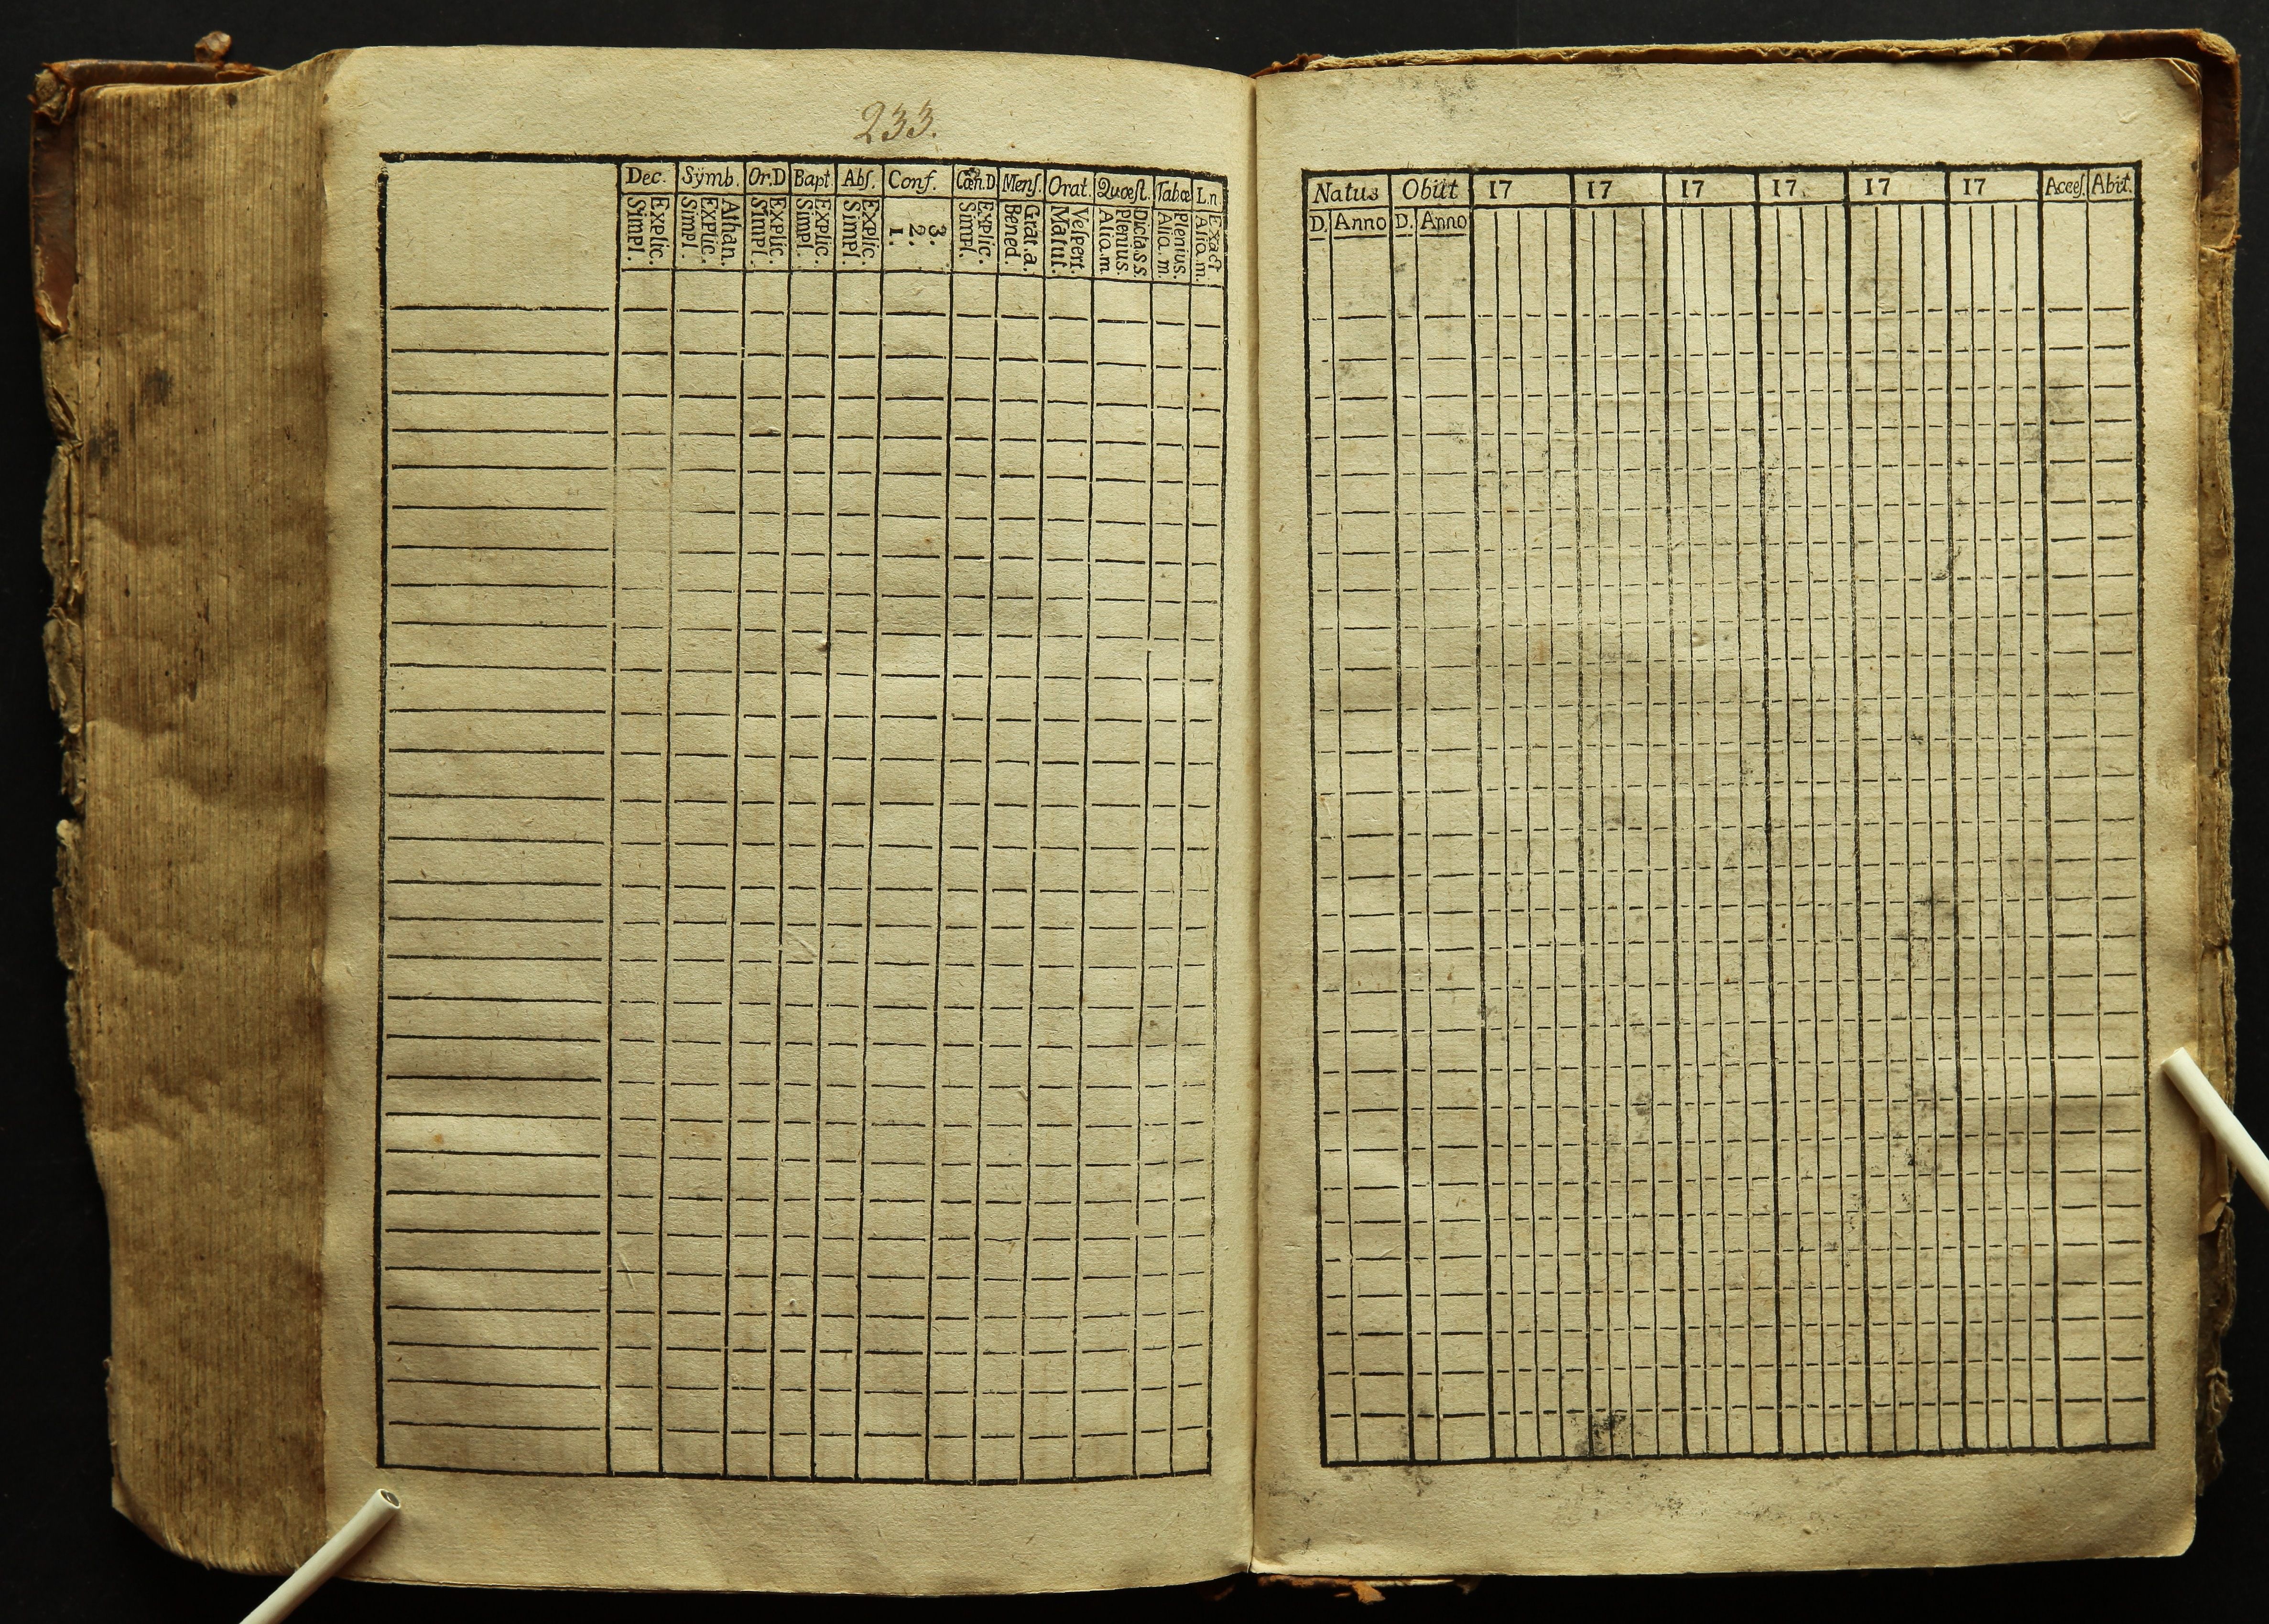 233.
Dec. Sÿmb. Or.D Bapt Abſ. Conf. Cœn.D Menſ. Orat. Quœſt. Tabœ L.n
Simpl. Explic. Simpl. Explic. Athan. Simpl. Explic. Simpl. Explic. Simpl. Explic. 1. 2. 3. Simpl. Explic. Bened. Grat.a. Matut. Veſpert. Alia.m Plenius. Dicta.s.s. Alia.m. Plenius. Alia.m. Exact
Natus Obiit 17 17 17 17 17 17 Acceſ. Abit.
D. Anno D. Anno